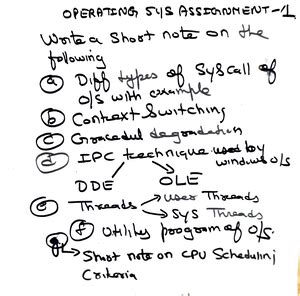 OPERATING SYS ASSIGNMENT-1
Write a Short note on the
following
(a) Diff types of Sys Call of
O/S with example
(b) Context Switching
(c) Graceful degradation
(d) IPC technique used by
windows O/S
DDE OLE
(e) Threads → User Threads
→ Sys Threads
(f) Utility program of O/S.
(g) → Short note on CPU Scheduling
Criteria